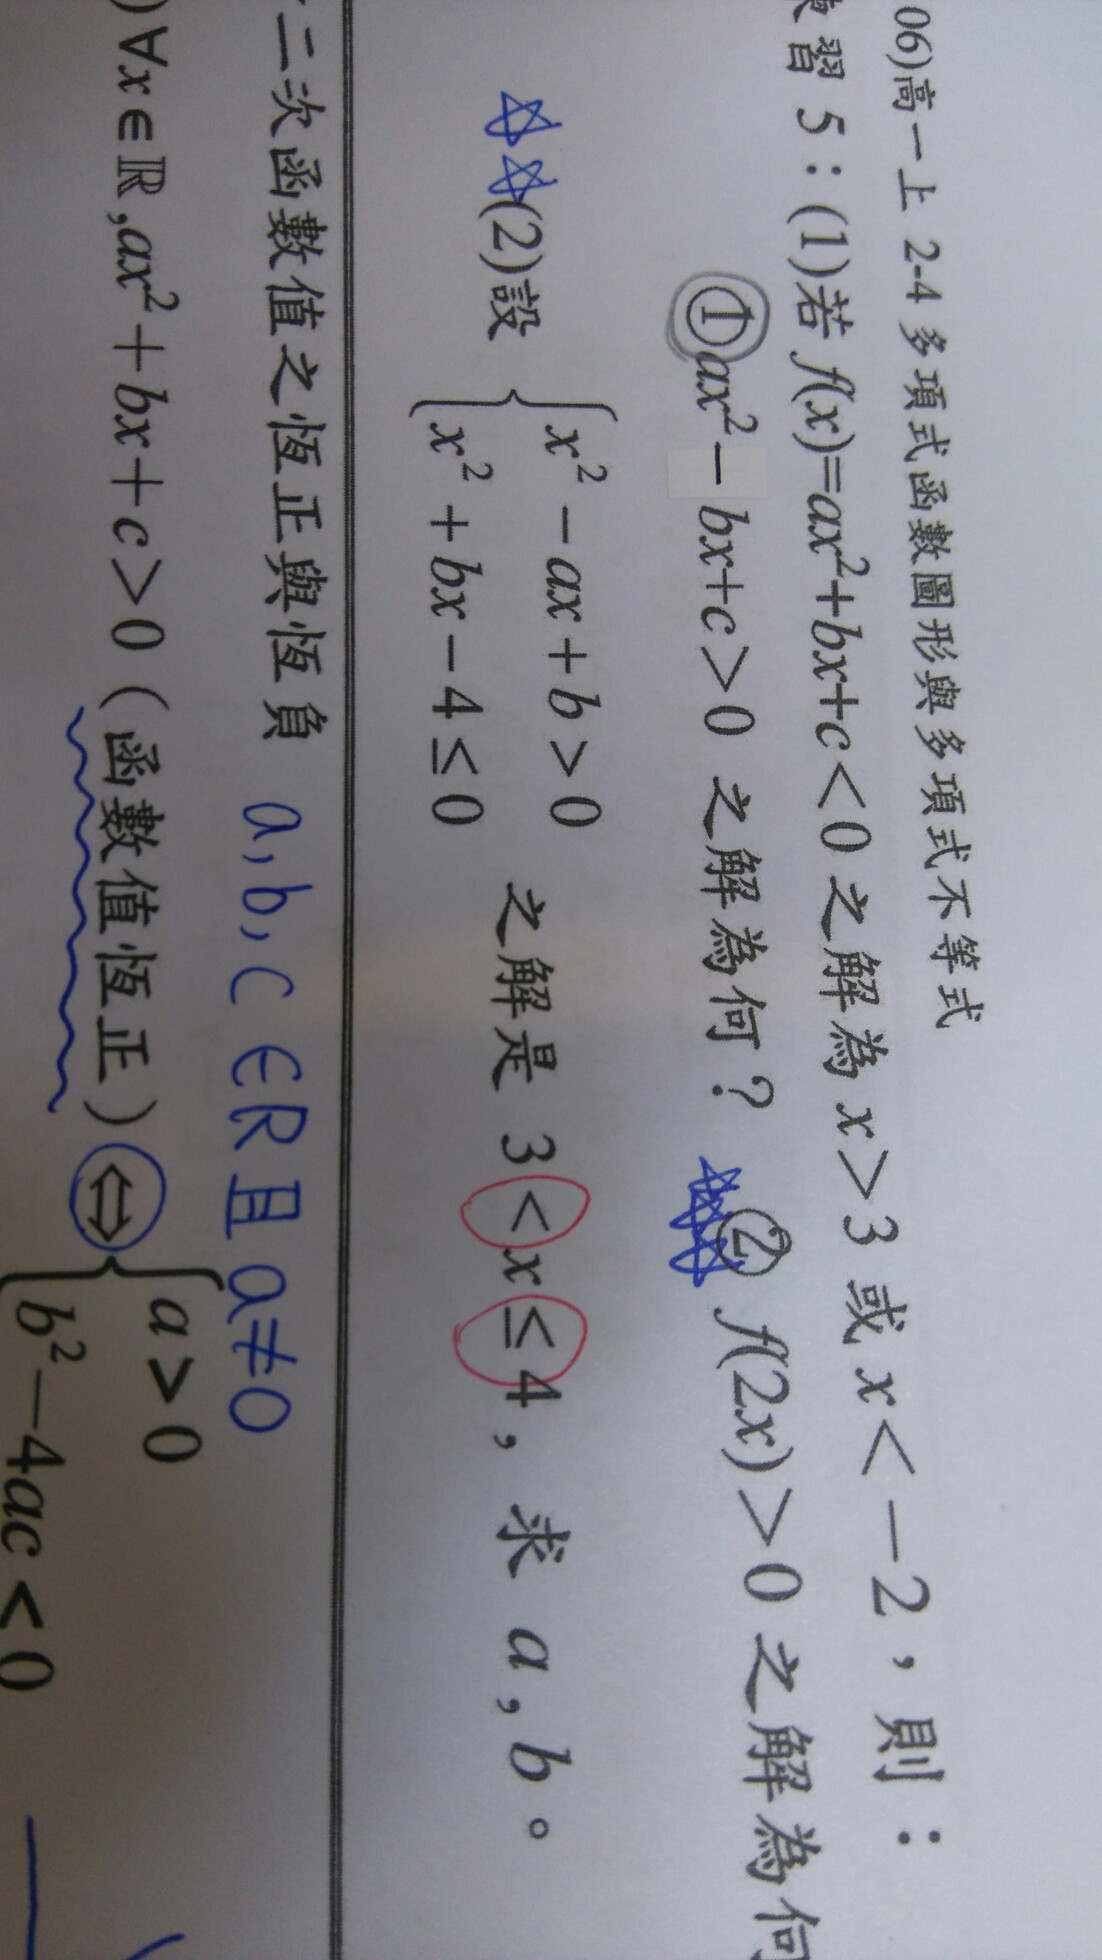 06)高一上 2-4 多項式函數圖形與多項式不等式
習 5：(1)若 f(x)=ax²+bx+c<0 之解為 x>3 或 x<-2，則：
①ax²-bx+c>0 之解為何？ ② f(2x)>0 之解為何
(2)設 { x²-ax+b>0
x²+bx-4≤0 之解是 3<x≤4，求 a,b。
二次函數值之恆正與恆負 a,b,c∈R且a≠0
)∀x∈ℝ,ax²+bx+c>0（函數值恆正）⇔ { a>0
b²-4ac<0